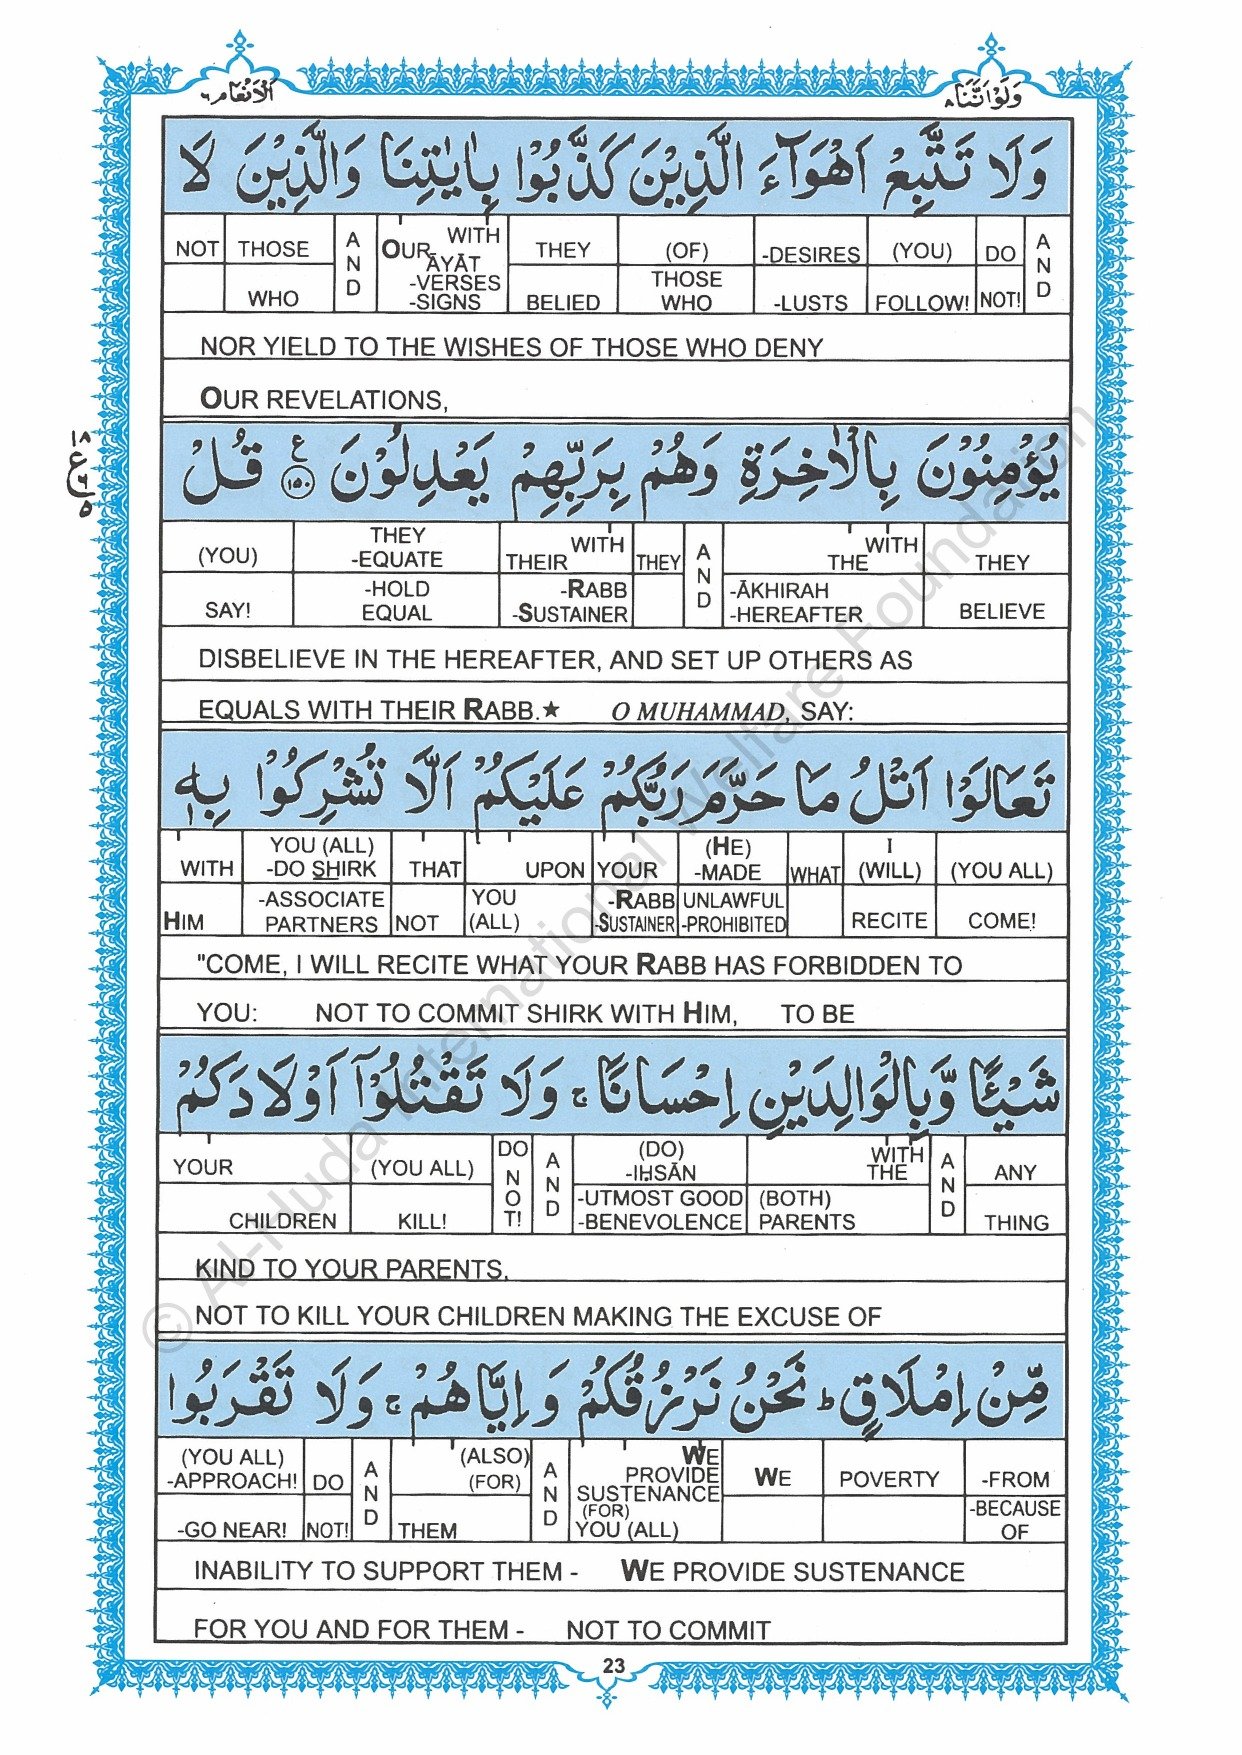 الانعام ٦
ولواننا ٨
وَلَا تَتَّبِعْ اَهْوَآءَ الَّذِيْنَ كَذَّبُوْا بِاٰيٰتِنَا وَالَّذِيْنَ لَا
NOT THOSE WHO AND OUR WITH ĀYĀT -VERSES -SIGNS THEY BELIED (OF) THOSE WHO -DESIRES -LUSTS (YOU) FOLLOW! DO NOT! AND
NOR YIELD TO THE WISHES OF THOSE WHO DENY
OUR REVELATIONS,
١٨
ع
٦
٥
يُؤْمِنُوْنَ بِالْاٰخِرَةِ وَهُمْ بِرَبِّهِمْ يَعْدِلُوْنَ ع ١٥٠ قُلْ
(YOU) SAY! THEY -EQUATE -HOLD EQUAL THEIR WITH -RABB -SUSTAINER THEY AND THE WITH -ĀKHIRAH -HEREAFTER THEY BELIEVE
DISBELIEVE IN THE HEREAFTER, AND SET UP OTHERS AS
EQUALS WITH THEIR RABB.★ O MUHAMMAD, SAY:
تَعَالَوْا اَتْلُ مَا حَرَّمَ رَبُّكُمْ عَلَيْكُمْ اَلَّا تُشْرِكُوْا بِهٖ
WITH HIM YOU (ALL) -DO SHIRK -ASSOCIATE PARTNERS THAT NOT UPON YOU (ALL) YOUR -RABB -SUSTAINER (HE) -MADE UNLAWFUL -PROHIBITED WHAT I (WILL) RECITE (YOU ALL) COME!
"COME, I WILL RECITE WHAT YOUR RABB HAS FORBIDDEN TO
YOU: NOT TO COMMIT SHIRK WITH HIM, TO BE
شَيْـًٔا وَّبِالْوَالِدَيْنِ اِحْسَانًا ۚ وَلَا تَقْتُلُوْٓا اَوْلَادَكُمْ
YOUR CHILDREN (YOU ALL) KILL! DO NOT! AND (DO) -IḤSĀN -UTMOST GOOD -BENEVOLENCE WITH THE (BOTH) PARENTS AND ANY THING
KIND TO YOUR PARENTS,
NOT TO KILL YOUR CHILDREN MAKING THE EXCUSE OF
مِّنْ اِمْلَاقٍ ؕ نَحْنُ نَرْزُقُكُمْ وَ اِيَّاهُمْ ۚ وَلَا تَقْرَبُوا
(YOU ALL) -APPROACH! -GO NEAR! DO NOT! AND (ALSO) (FOR) THEM AND WE PROVIDE SUSTENANCE (FOR) YOU (ALL) WE POVERTY -FROM -BECAUSE OF
INABILITY TO SUPPORT THEM - WE PROVIDE SUSTENANCE
FOR YOU AND FOR THEM - NOT TO COMMIT
23
© Al-Huda International Welfare Foundation